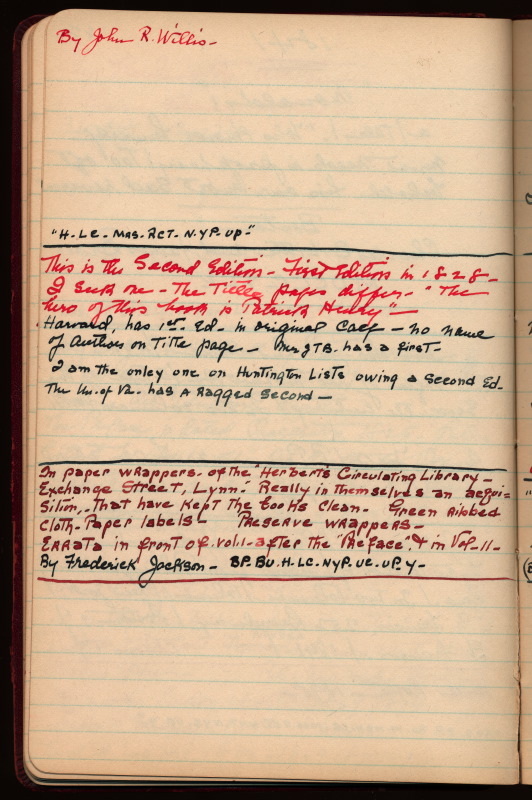 By John R. Willis-
"H-LC-MAS-RCT-N.YP-UP-"
This is the Second Edition- First Editions in 1828-
I seek one - The Titles pages differ- "The
hero of this book is Patrick Henry"-
Harvard, has 1st- Ed- in original Calf - no name
of Author on Title page- Mr. J T B. has a first-
I am the onley one on Huntington Lists owing a Second Ed-
The Un. of Va. has a Ragged Second -
In paper wrappers- of the "Herbert's Circulating Library-
Exchange Street, Lynn." Really in themselves an acqui=
sition,- That have kept the books clean- Green Ribbed
cloth-Paper labels- Preserve wrappers-
Errata in front of vol.1-after the "Preface", & in Vol-11-
By Frederick Jackson- BP-BU-H-LC-NYP-UC-UP-Y-